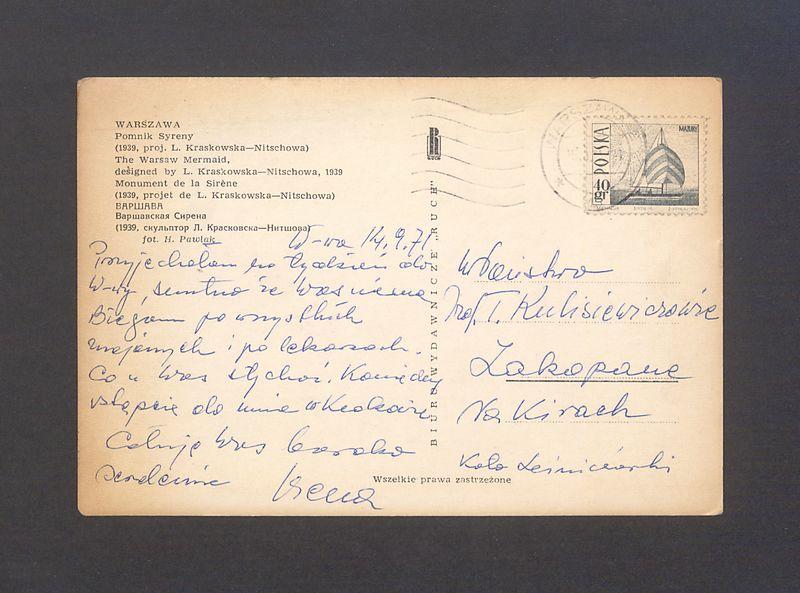 WARSZAWA
Pomnik Syreny
(1939, proj. L. Kraskowska—Nitschowa)
The Warsaw Mermaid,
designed by L. Kraskowska—Nitschowa, 1939
Monument de la Sirène
(1939, projet de L. Kraskowska—Nitschowa)
ВАРШАВА
Варшавская Сирена
(1939, скульптор Л. Красковска—Нитшова)
fot. H. Pawlak
W-wa 14.9.71
Przyjechałam na tydzień do
W-wy, smutno że Was niema
Biegam po wszystkich
znajomych i po lekarzach.
Co u Was słychać. Koniecznie
wstąpcie do mnie w Krakowie
Całuję Was bardzo
serdecznie Irena
BIURO WYDAWNICZE „RUCH"
Wszelkie prawa zastrzeżone
WARSZAWA
POLSKA
MAZURY
40
gr
W Państwo
Prof. T. Kulisiewiczowie
Zakopane
Na Kirach
Koło Leśniczówki